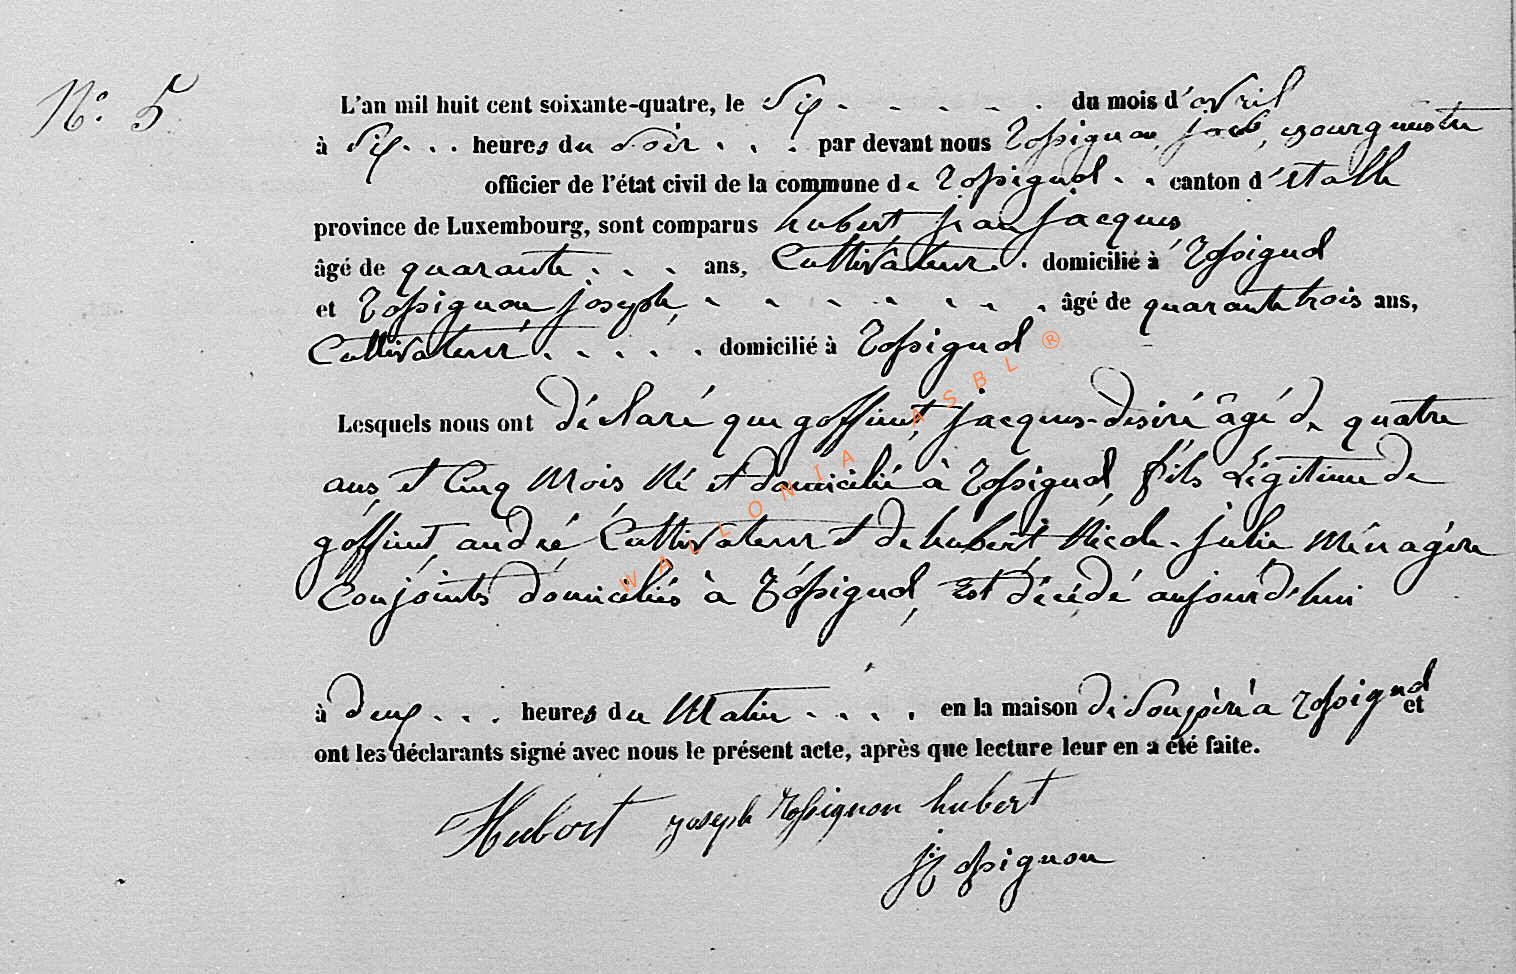 N° 5
L'an mil huit cent soixante-quatre, le six du mois d'avril
à six heures du soir par devant nous Rossignon, jacob, Bourgmestre
officier de l'état civil de la commune de Rossignol canton d'Etalle
province de Luxembourg, sont comparus hubert jean jacques
âgé de quarante ans, Cultivateur domicilié à Rossignol
et Rossignon joseph, âgé de quarante trois ans,
Cultivateur domicilié à Rossignol
Lesquels nous ont déclaré que goffinet, jacques-desiré âgé de quatre
ans, et Cinq Mois, Né et domicilié à Rossignol, fils Légitime de
goffinet, andré Cultivateur et de hubert, Nicole-julie Ménagère
Conjoints domiciliés à Rossignol, Est décédé aujourd'hui
à deux heures du Matin en la maison de Son père à Rossignol et
ont les déclarants signé avec nous le présent acte, après que lecture leur en a été faite.
Hubert joseph Rossignon hubert
j Rossignon
WALLONIA ASBL ®